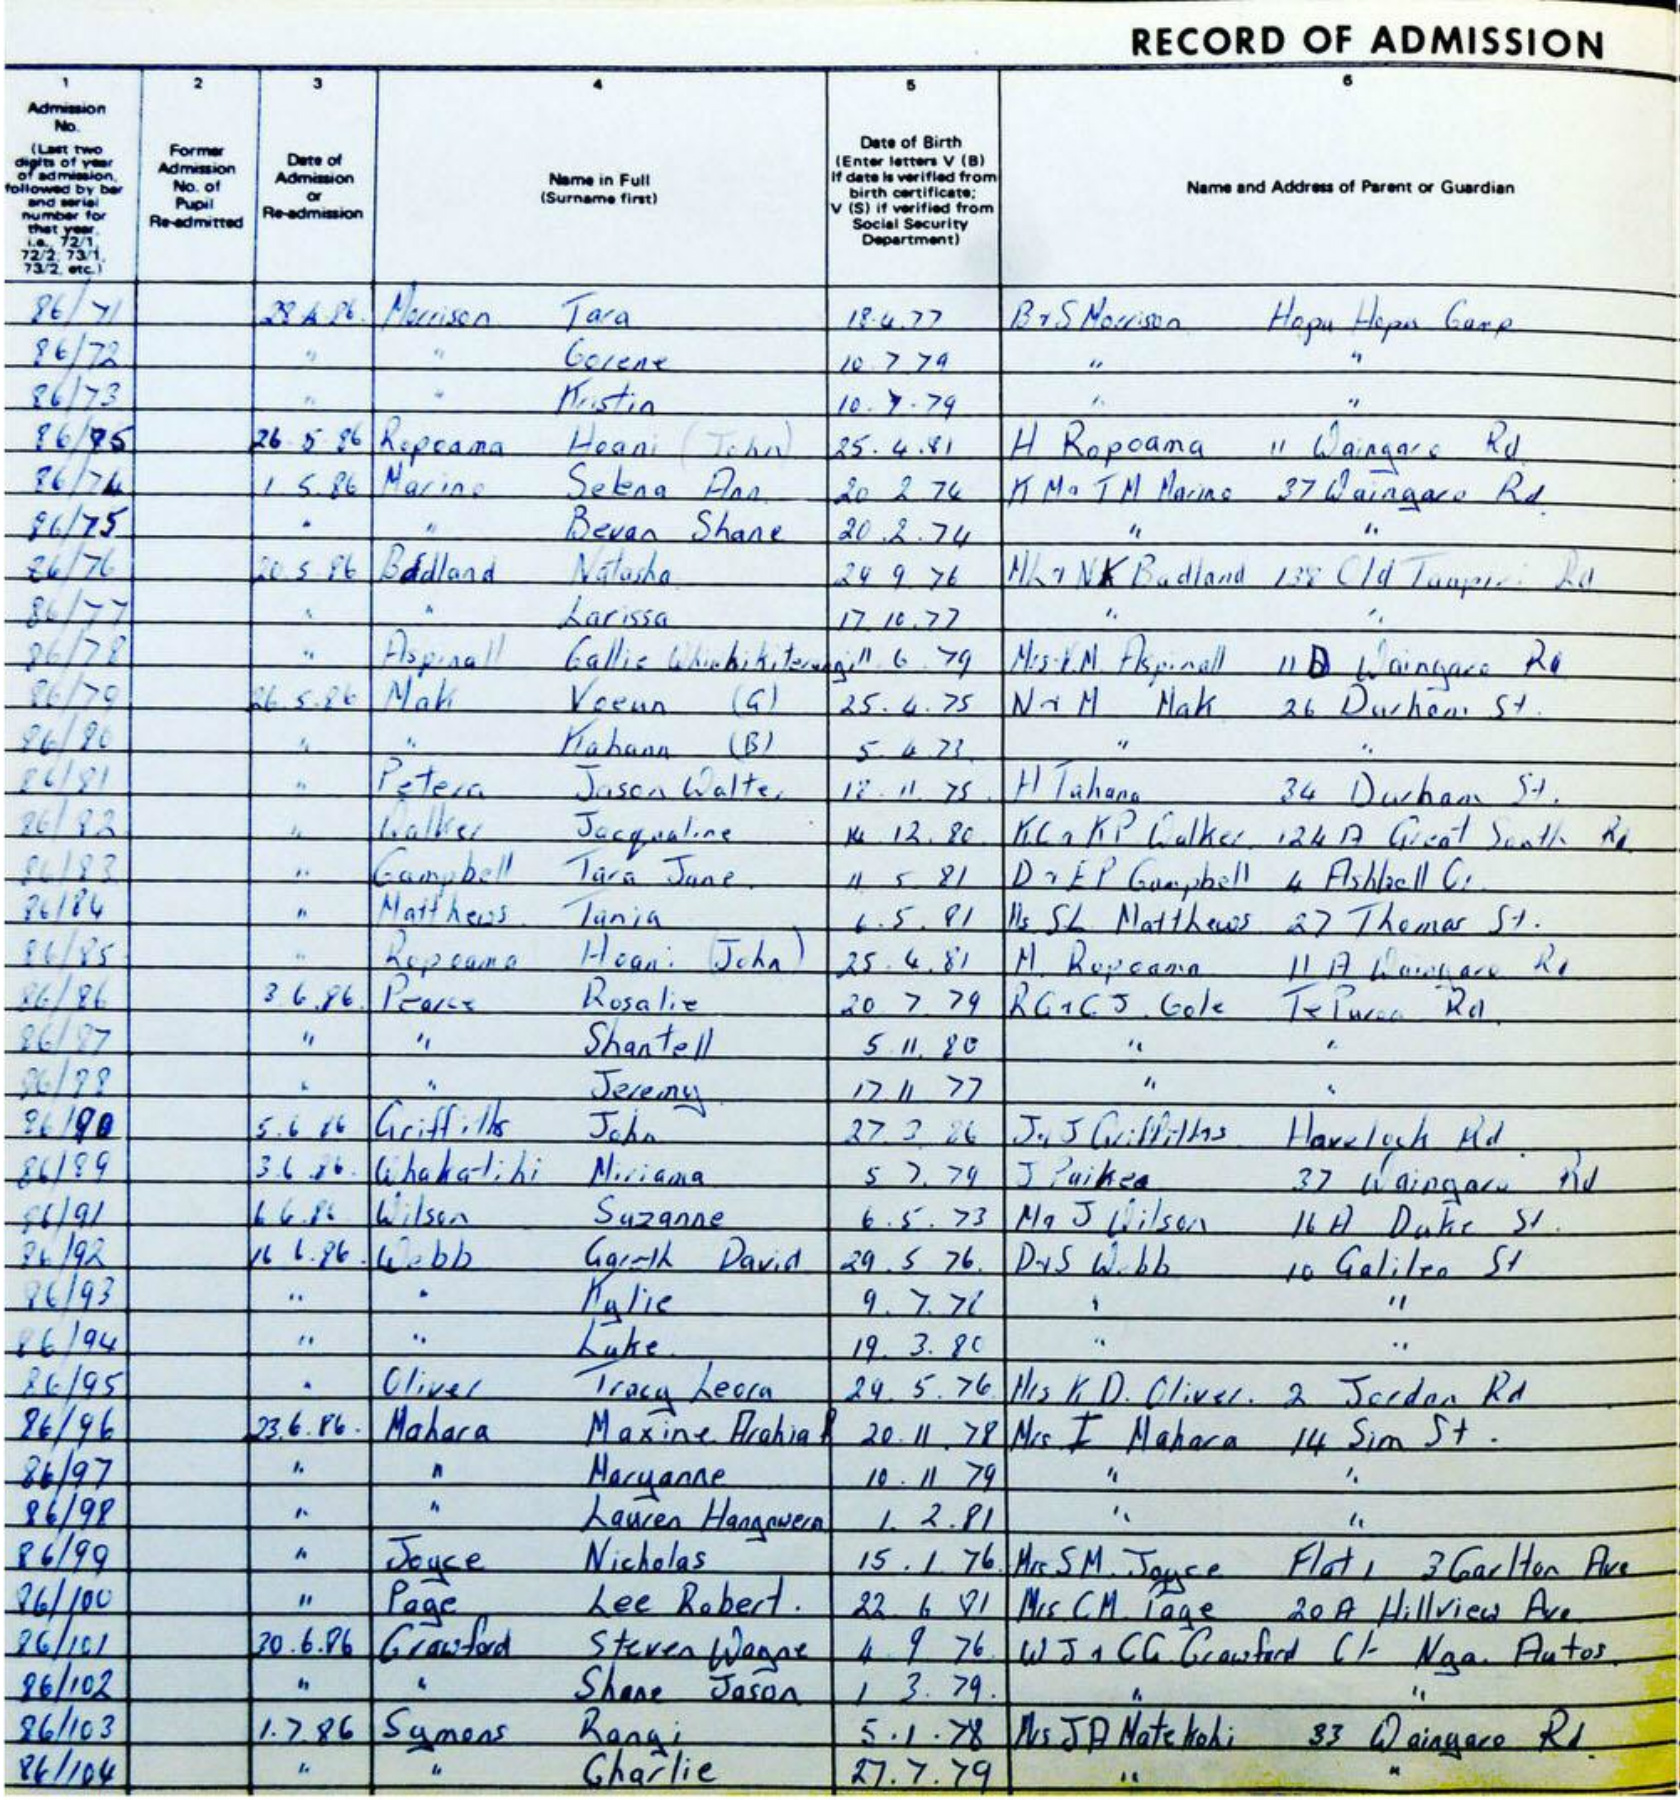 RECORD OF ADMISSION
1 2 3 4 5 6
Admission No. (Last two digits of year of admission, followed by bar and serial number for that year, i.e., 72/1, 72/2, 73/1, 73/2, etc.)
Former Admission No. of Pupil Re-admitted
Date of Admission or Re-admission
Name in Full (Surname first)
Date of Birth (Enter letters V (B) if date is verified from birth certificate; V (S) if verified from Social Security Department)
Name and Address of Parent or Guardian
86/71 28.4.86. Morrison Tara 18.4.77 B & S Morrison Hopu Hopu Camp
86/72 " " Corene 10.7.79 " "
86/73 " " Kristin 10.7.79 " "
86/85 26.5.86 Ropoama Hoani (John) 25.4.81 H Ropoama 11 Waingaro Rd
86/74 1.5.86 Marino Selena Ann 20.2.74 K M & T M Marino 37 Waingaro Rd
86/75 " " Bevan Shane 20.2.74 " "
86/76 20.5.86 Badland Natasha 29.9.76 & N K Badland 138 Old Taupiri Rd
86/77 " " Larissa 17.10.77 " "
86/78 " Aspinall Callie 11.6.79 Mrs K.M. Aspinall 11 D Waingaro Rd
86/79 26.5.86 Mak Voeun (G) 25.4.75 N & M Mak 26 Durham St.
86/80 " " Kahann (B) 5.4.73 " "
86/81 " Petera Jason Walter 18.11.75 H Tahana 34 Durham St.
86/82 " Walker Jacqualine 14.12.80 K.C & K P Walker 124 A Great South Rd
86/83 " Campbell Tara Jane 11.5.81 D & E P Campbell 4 Ashbell Cr.
86/84 " Matthews Tania 6.5.81 Ms S L Matthews 27 Thomas St.
86/85 " Ropoama Hoani (John) 25.4.81 H. Ropoama 11 A Waingaro Rd
86/86 3.6.86. Pearce Rosalie 20.7.79 R G & C J Cole Te Puroa Rd
86/87 " " Shantell 5.11.80 " "
86/88 " " Jeremy 17.11.77 " "
86/90 5.6.86 Griffiths John 27.3. J & J Griffiths Havelock Rd
86/89 3.6.86. Whakatihi Miriama 5.7.79 J Paikea 37 Waingaro Rd
86/91 6.6.86 Wilson Suzanne 6.5.73 J Wilson 16 A Duke St.
86/92 16.6.86. Webb Gareth David 29.5.76. D & S Webb 10 Galileo St
86/93 " " Kylie 9.7.78 " "
86/94 " " Luke 19.3.80 " "
86/95 " Oliver Tracy Leora 29.5.76. Mrs K D. Oliver. 2 Jordan Rd
86/96 23.6.86. Mahara Maxine Arahia R 20.11.78 Mrs I Mahara 14 Sim St.
86/97 " " Maryanne 10.11.79 " "
86/98 " " Lauren Hangawera 1.2.81 " "
86/99 " Joyce Nicholas 15.1.76. Mrs S M. Joyce Flat 1 3 Carlton Ave
86/100 " Page Lee Robert. 22.6.81 Mrs C M. Page 20 A Hillview Ave
86/101 30.6.86 Crawford Steven Wayne 4.9.76 W J & C G Crawford C/- Nga. Autos.
86/102 " " Shane Jason 1.3.79. " "
86/103 1.7.86 Symons Rangi 5.1.78 Mrs J A Matekohi 33 Waingaro Rd
86/104 " " Charlie 27.7.79 " "